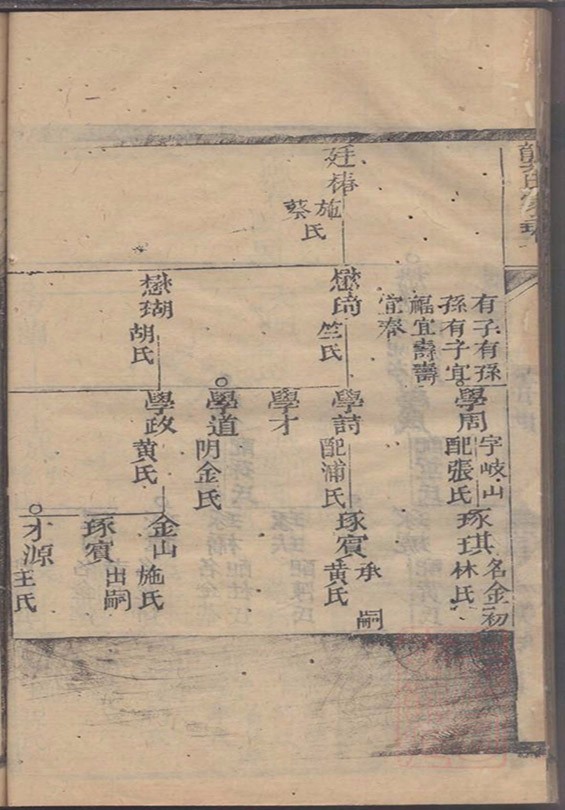 有子有孫
孫有子宜
福宜壽壽
宜奉
學周
字岐山
配張氏
琢琪
名金初
林氏
廷椿
施氏
蔡
懋琦
竺氏
學詩
配浦氏
琢賓
承嗣
黄氏
學才
學道
明金氏
懋瑚
胡氏
學政
黄氏
金山
施氏
琢賓
出嗣
才源
王氏